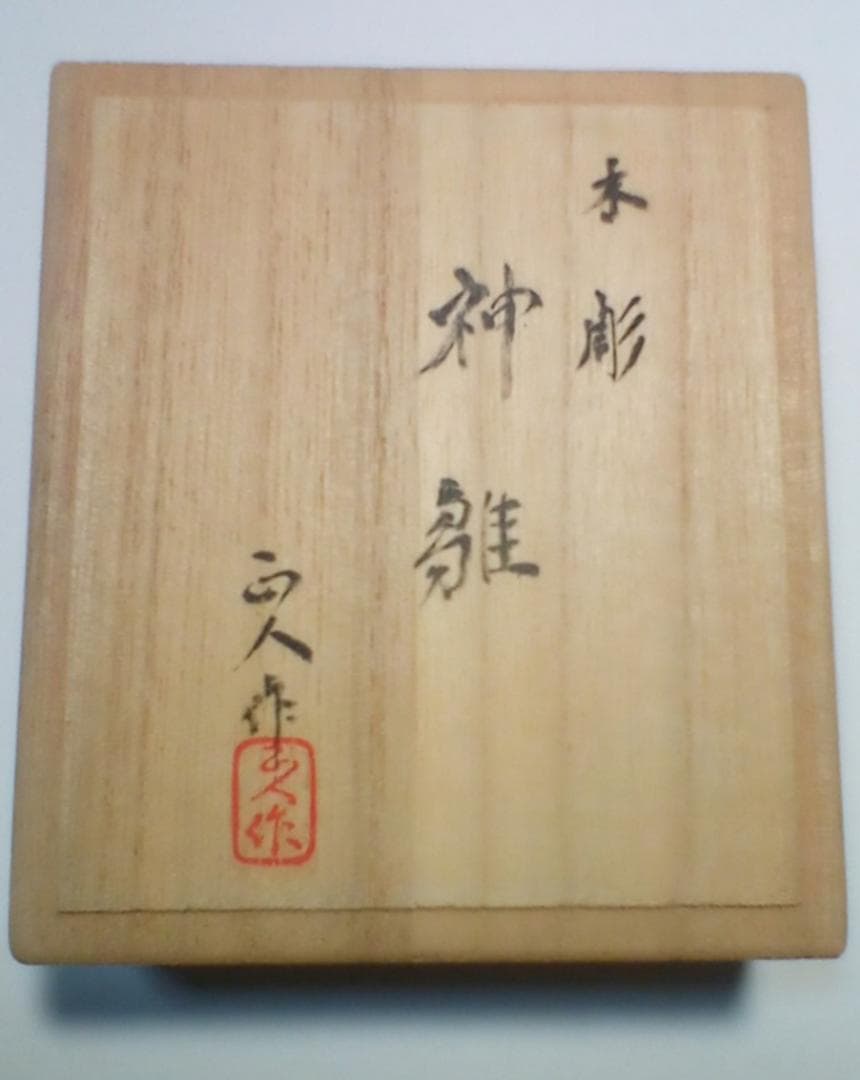 木彫
神雛
正人作
正人作